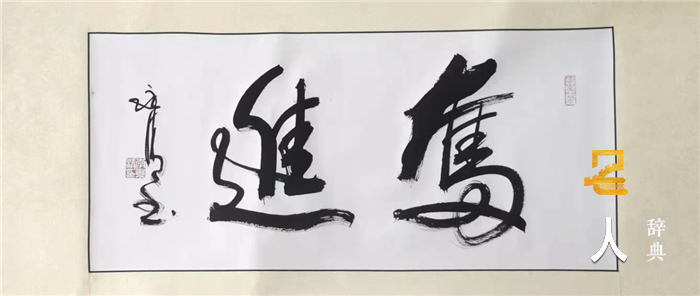 奮進
名人
辞典